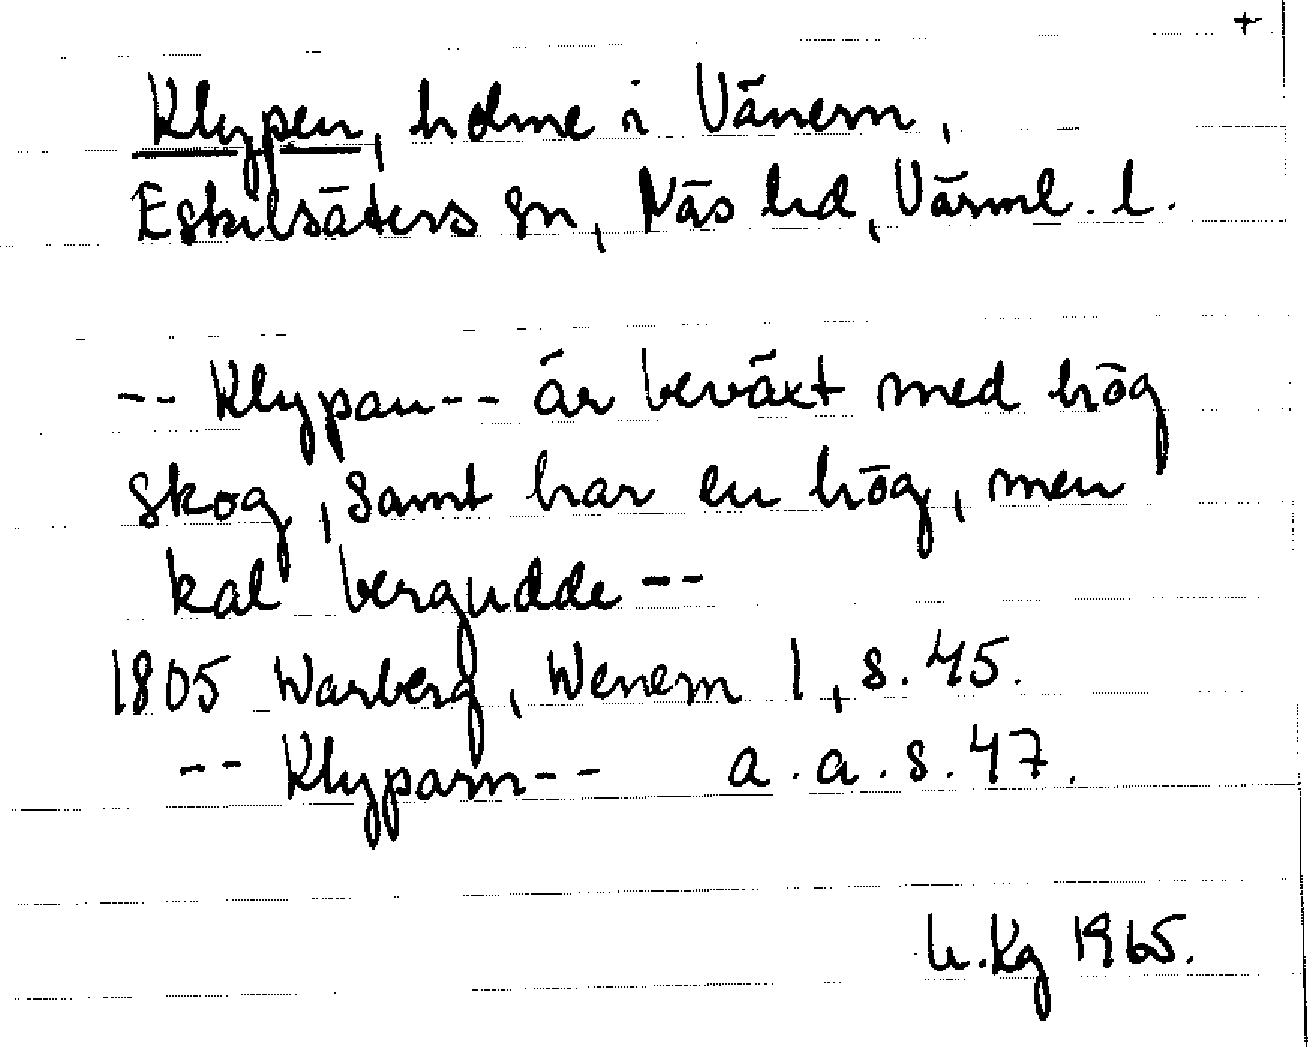 +
Klypen, holme i Vänern,
Eskilsäters sn, Näs hd, Värml. l.
-- Klypan -- är beväxt med hög
skog, samt har en hög, men
kal bergudde --
1805 Warberg, Wenern 1, s. 45.
-- Klyparn -- a.a.s. 47.
Kg 1965.